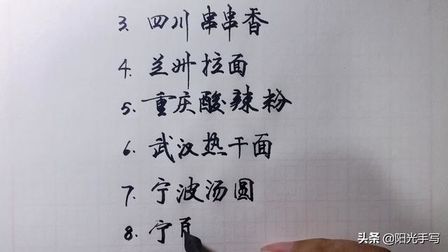 3. 四川串串香
4. 兰州拉面
5. 重庆酸辣粉
6. 武汉热干面
7. 宁波汤圆
8. 宁
头条 @阳光手写